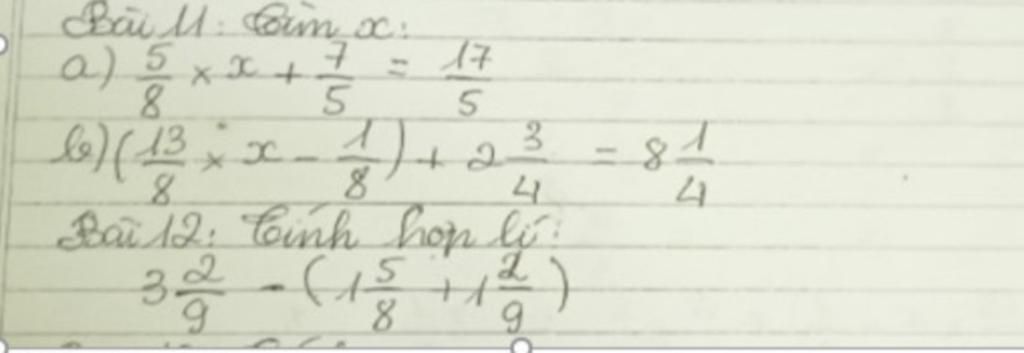 Bài 11: Tìm x:
a) 5/8 × x + 7/5 = 17/5
b) (13/8 × x - 1/8) + 2 3/4 = 8 1/4
Bài 12: Tính hợp lí:
3 2/9 - (1 5/8 + 1 2/9)